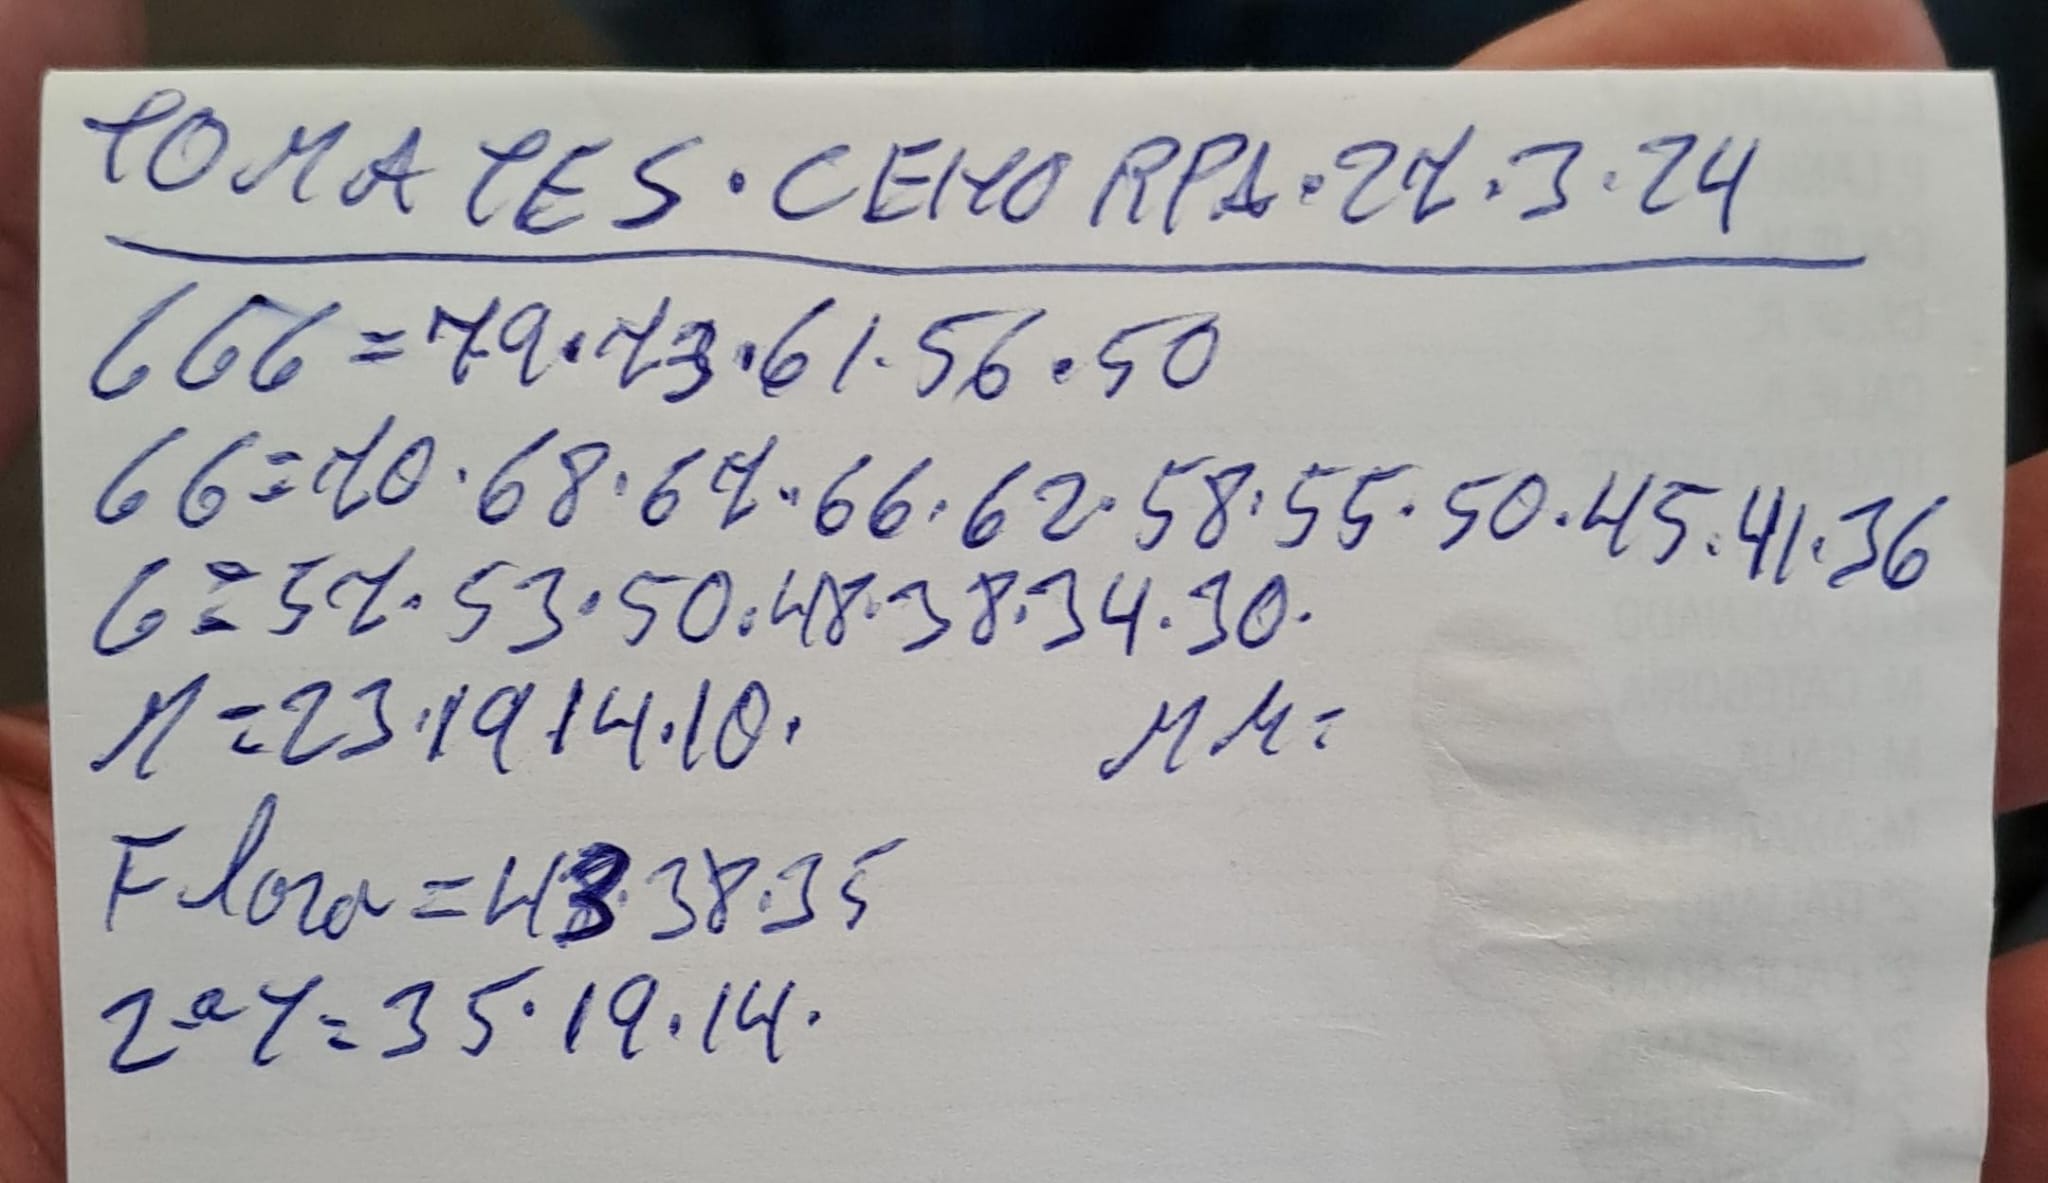 TOMATES · CEHORPA · 27 · 3 · 24
GGG = 79 · 73 · 61 · 56 · 50
GG = 70 · 68 · 67 · 66 · 62 · 58 · 55 · 50 · 45 · 41 · 36
G = 57 · 53 · 50 · 48 · 38 · 34 · 30 ·
M = 23 · 19 14 · 10 · MM =
Flora = 43 · 38 · 35
2ª 7 = 35 · 19 · 14 ·